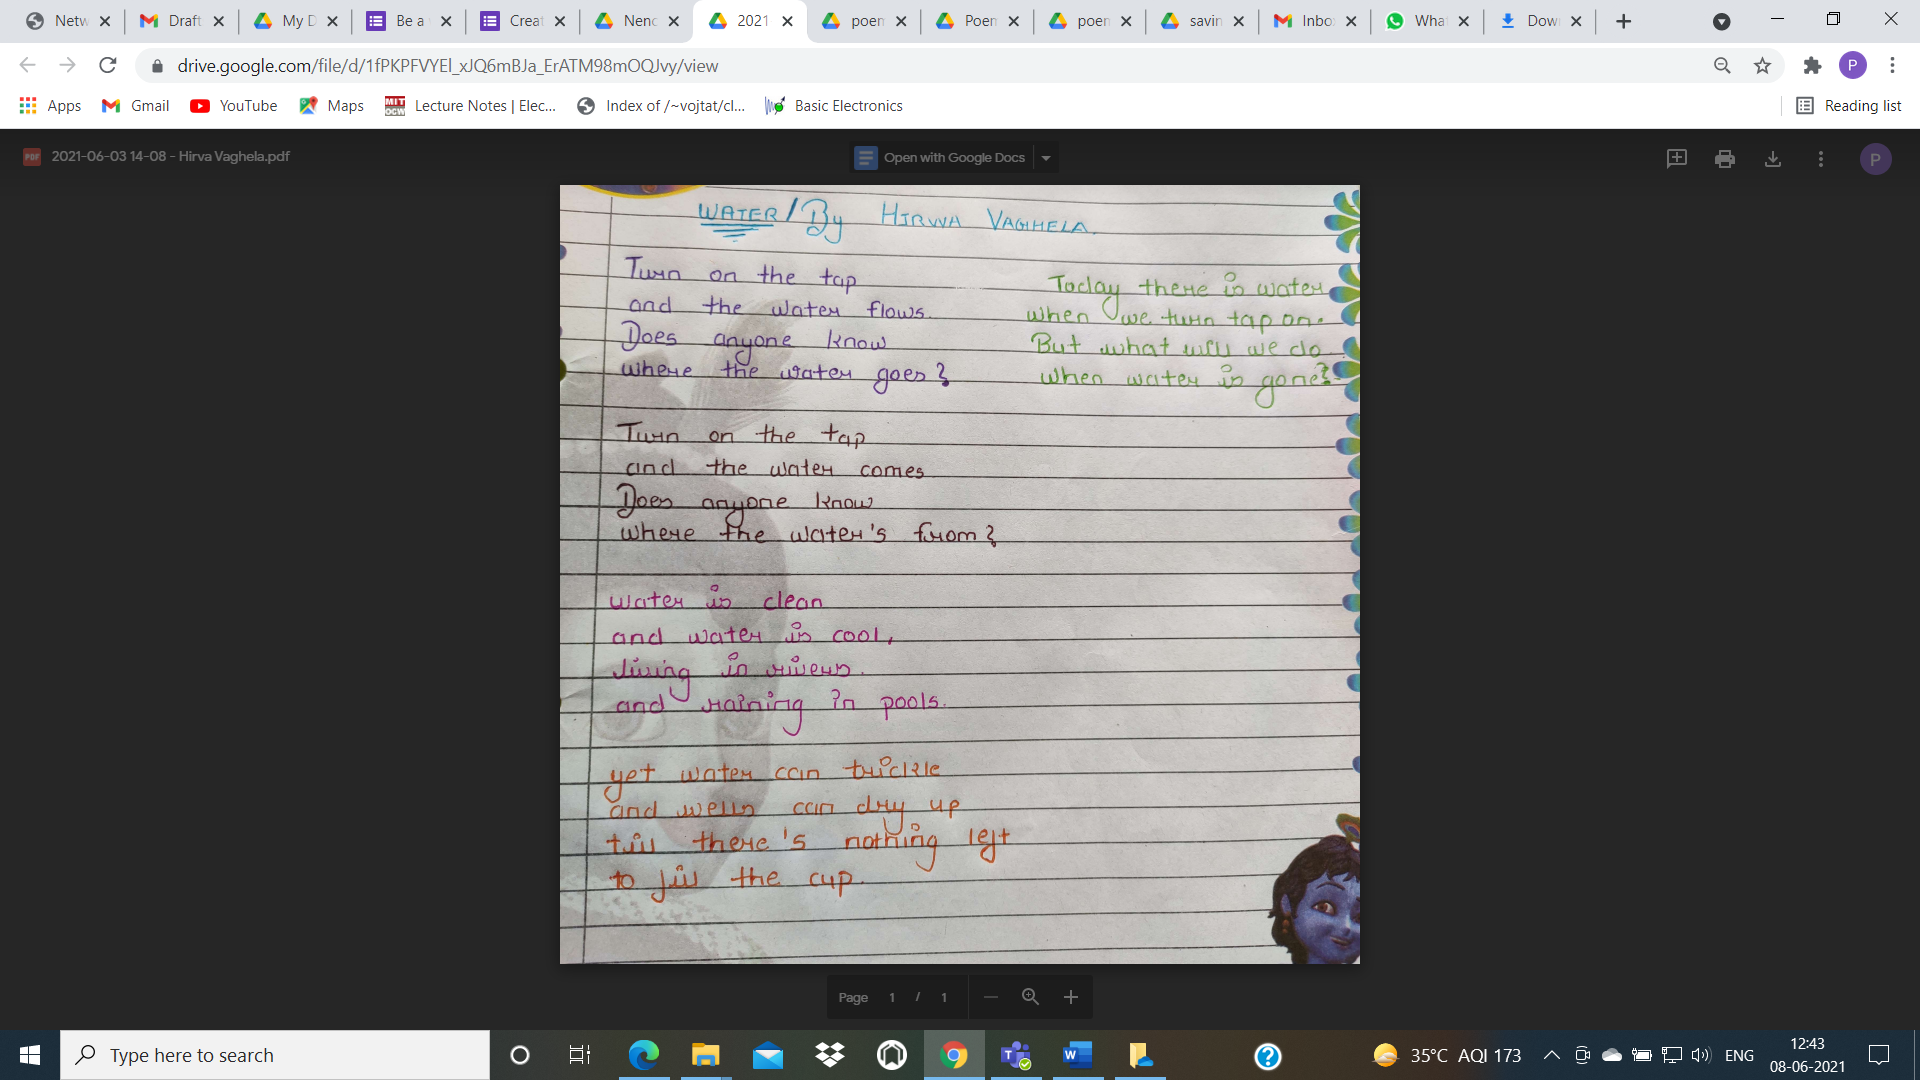 Netw
Draft
My D
Be a
Creat
Nenc
2021
poem
Poem
poem
savin
Inbo
What
Down
drive.google.com/file/d/1fPKPFVYEl_xJQ6mBJa_ErATM98mOQJvy/view
P
Apps
Gmail
YouTube
Maps
MIT OCW
Lecture Notes | Elec...
Index of /~vojtat/cl...
Basic Electronics
Reading list
PDF
2021-06-03 14-08 - Hirva Vaghela.pdf
Open with Google Docs
P
WATER / By HIRVA VAGHELA.
Turn on the tap
and the water flows.
Does anyone know
where the water goes?
Turn on the tap
and the water comes
Does anyone know
where the water's from?
water is clean
and water is cool,
living in rivers.
and raining in pools.
yet water can trickle
and wells can dry up
till there's nothing left
to fill the cup.
Today there is water
when we turn tap on.
But what will we do
when water is gone?
Page 1 / 1
Type here to search
35°C AQI 173
ENG
12:43
08-06-2021